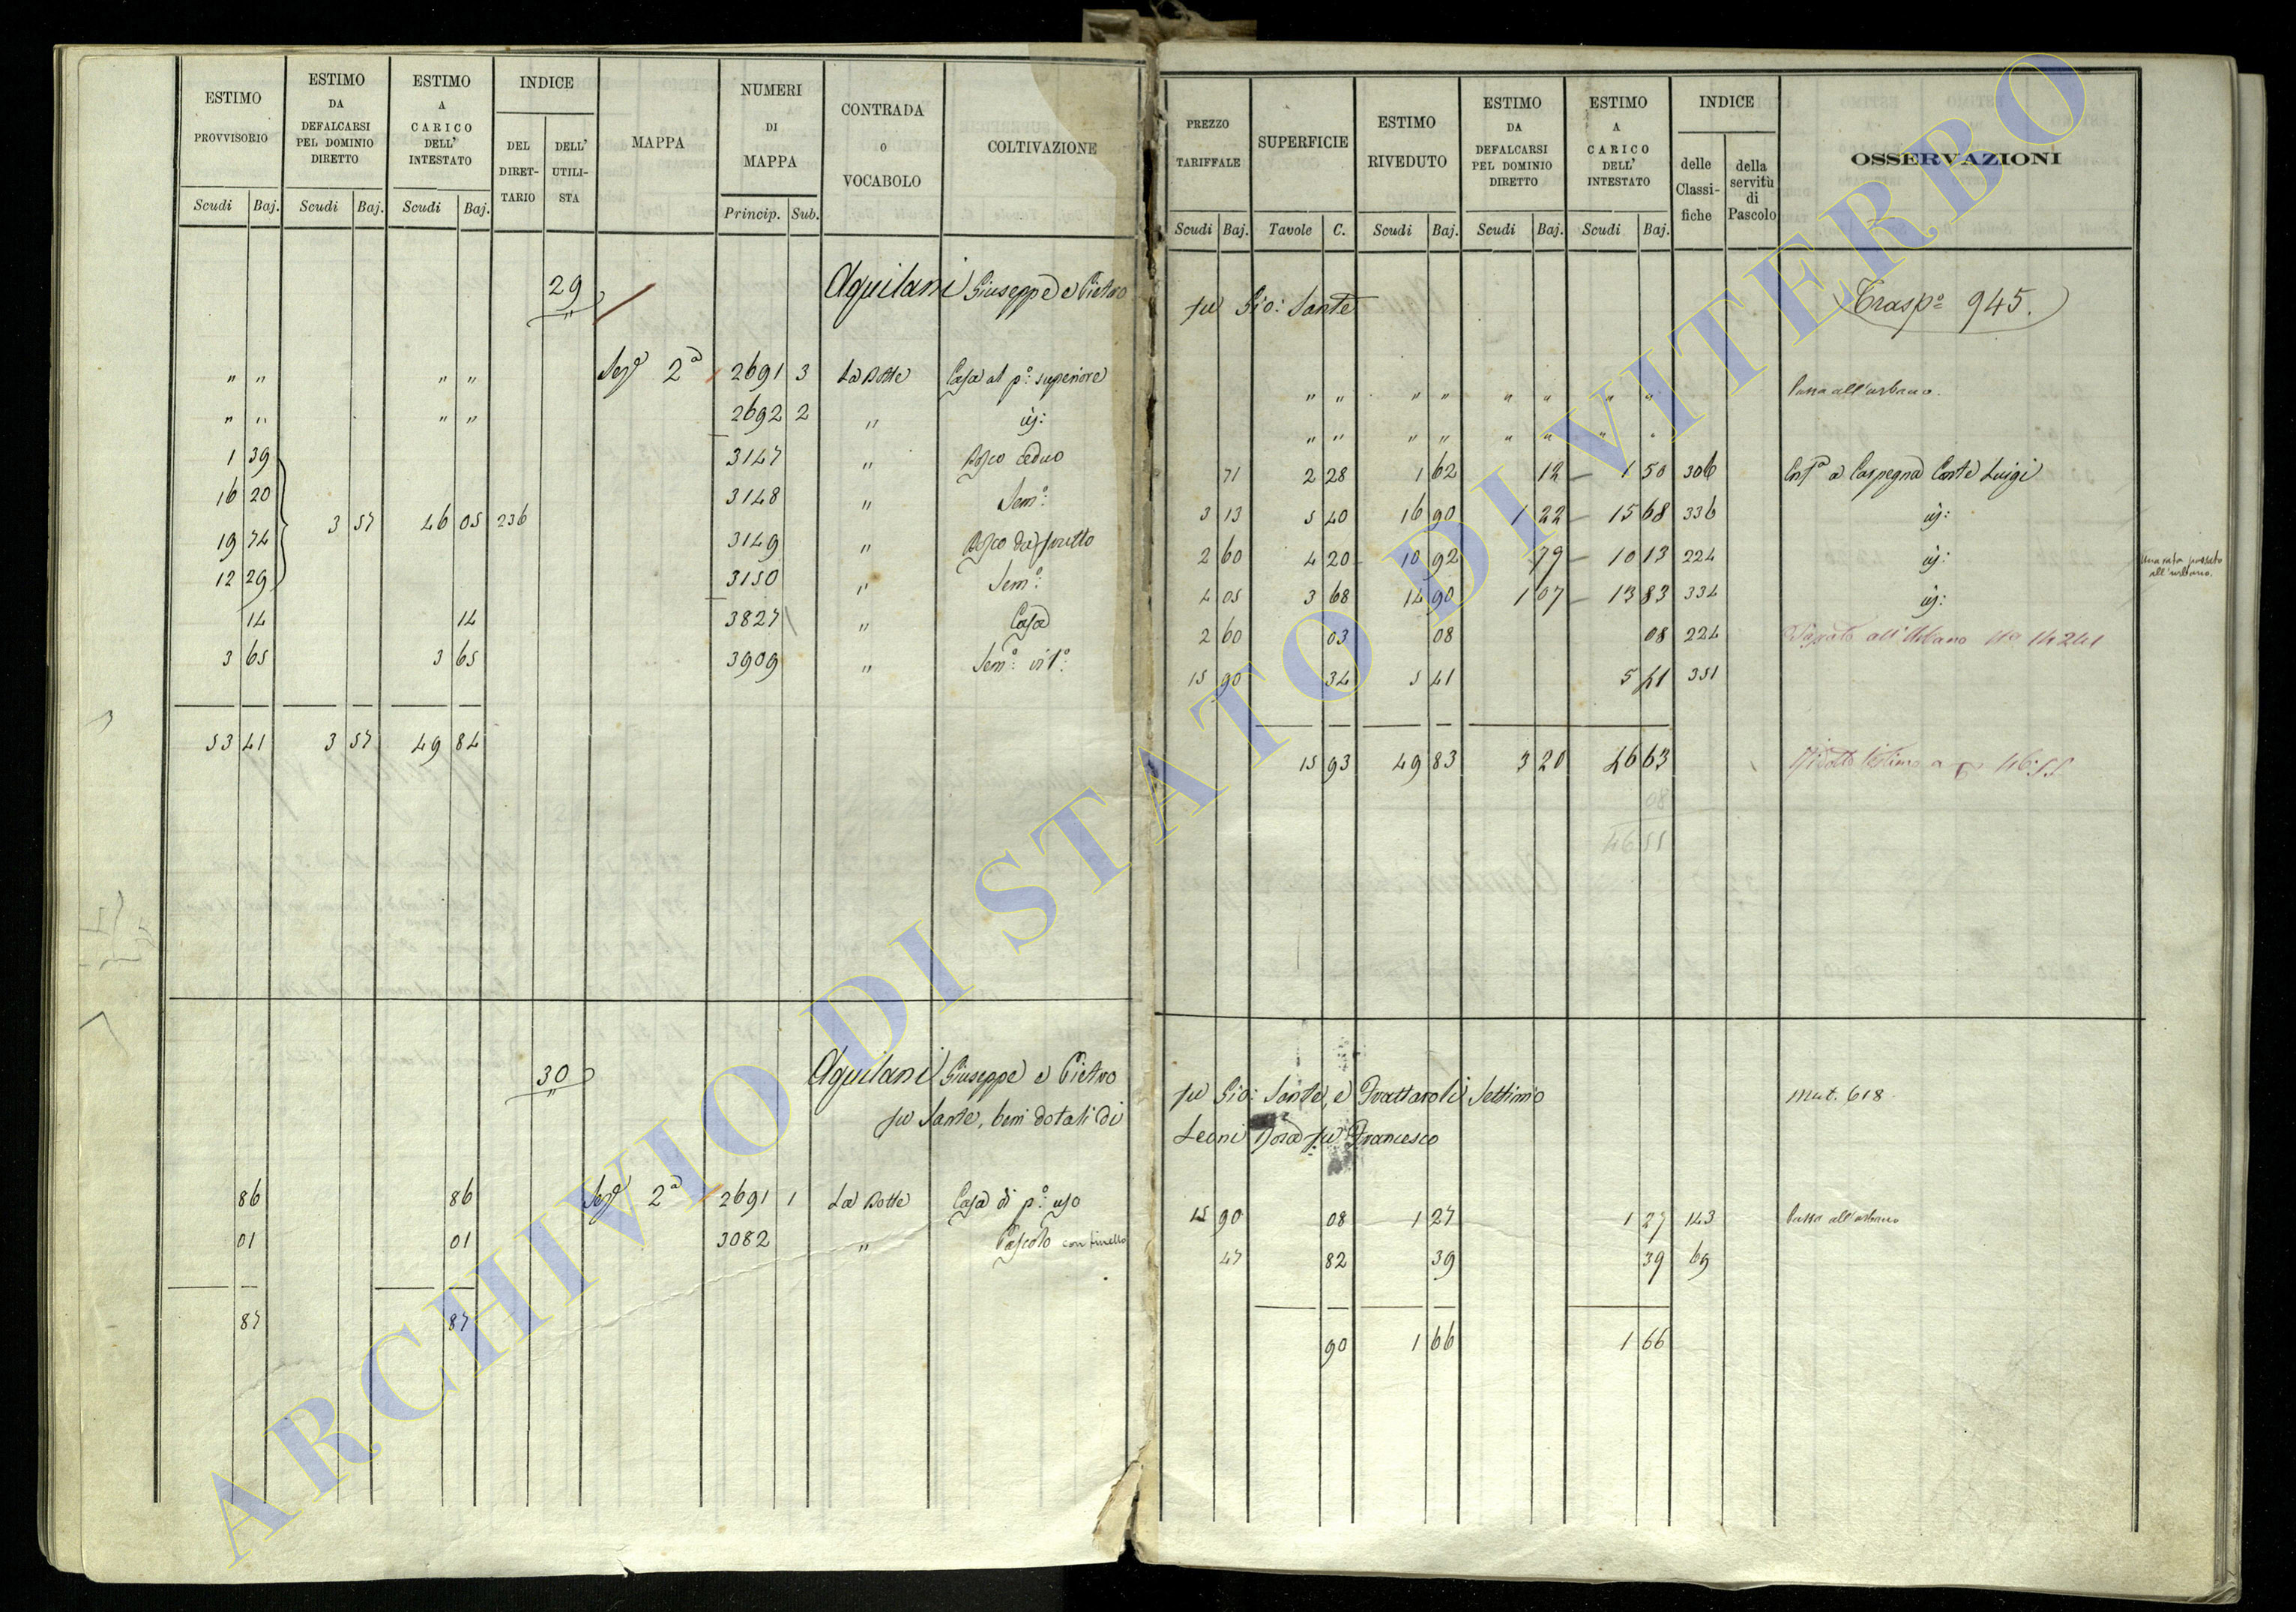 ESTIMO PROVVISORIO Scudi Baj.
ESTIMO DA DEFALCARSI PEL DOMINIO DIRETTO Scudi Baj.
ESTIMO A CARICO DELL' INTESTATO Scudi Baj.
INDICE DEL DIRET-TARIO DELL' UTILI-STA
MAPPA
NUMERI DI MAPPA Princip. Sub.
CONTRADA O VOCABOLO
COLTIVAZIONE
PREZZO TARIFFALE Scudi Baj.
SUPERFICIE Tavole C.
ESTIMO RIVEDUTO Scudi Baj.
ESTIMO DA DEFALCARSI PEL DOMINIO DIRETTO Scudi Baj.
ESTIMO A CARICO DELL' INTESTATO Scudi Baj.
INDICE delle Classi-fiche della servitù di Pascolo
OSSERVAZIONI
29 Aquilani Giuseppe e Pietro fu Gio: Sante Trasp.º 945.
" " " " Sez.ª 2ª 2691 3 La Botte Casa al p.º superiore " " " " " " " " Passa all'urbano.
" " " " 2692 2 " id: " " " " " " " "
1 39 3147 " Bosco ceduo 71 2 28 1 62 12 1 50 306 Enf.ª a Carpegna Conte Luigi
16 20 3148 " Sem.º 3 13 5 40 16 90 1 22 15 68 336 id:
3 57 46 05 236
19 74 3149 " Bosco da frutto 2 60 4 20 10 92 79 10 13 224 id: una rata passato all'urbano.
12 29 3150 " Sem.º 4 05 3 68 14 90 1 07 13 83 334 id:
14 14 3827 " Casa 2 60 03 08 08 224 Passato all'Urbano
3 65 3 65 3909 " Sem.º vit.º 15 90 34 5 41 5 41 351
53 41 3 57 49 84 15 93 49 83 3 20 46 63 Ridotto l'estimo a 46:55
08
46 55
30 Aquilani Giuseppe e Pietro fu Gio: Sante, e Frattaroli Settimio mut. 618
fu Sante, beni dotali di Leoni Rosa fu Francesco
86 86 Sez.ª 2ª 2691 1 La Botte Casa di p.º uso 15 90 08 1 27 1 27 143 Passa all'urbano
01 01 3082 " Pascolo con tinello 47 82 39 39 69
87 87 90 1 66 1 66
ARCHIVIO DI STATO DI VITERBO